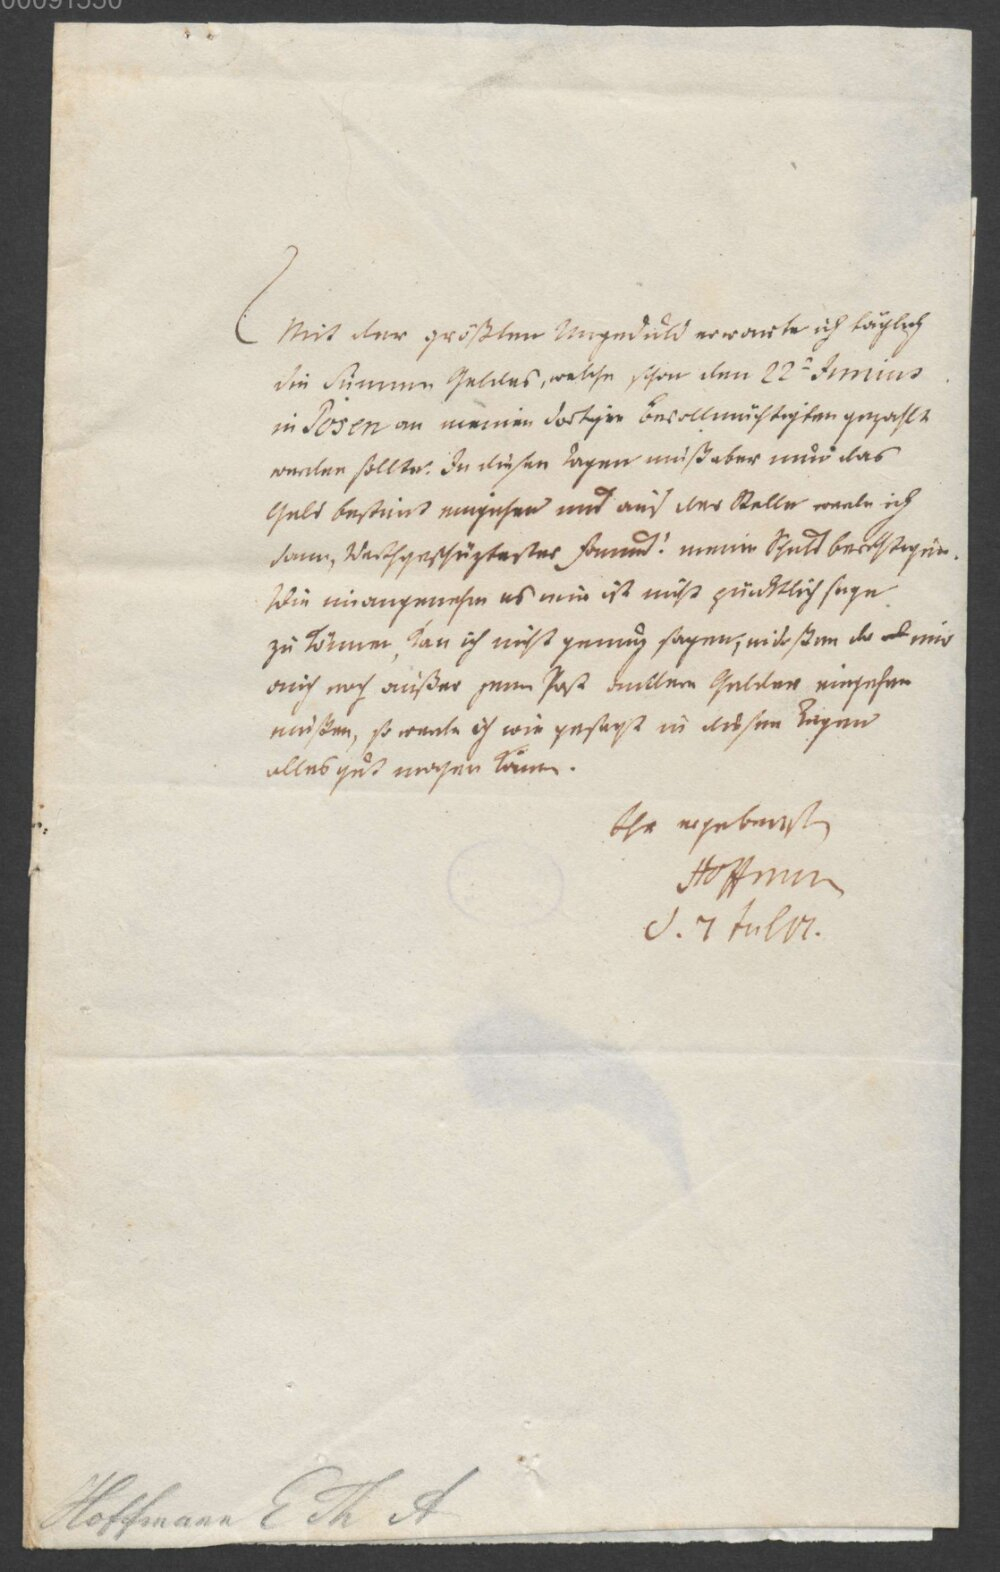 00091550
Mit der größten Ungeduld erwarte ich täglich
die Summe Geldes, welche schon den 22t Junius
in Posen an meinen dortigen Bevollmächtigten gezahlt
werden sollte. In diesen Tagen muß aber nun das
Geld bestimt eingehen und auf der Stelle werde ich
dann, Werthgeschäztester Freund! meine Schuld berichtigen.
Wie unangenehm es mir ist nicht pünktlich seyn
zu können, kan ich nicht genug sagen, indessen da mir
auch noch außer jener Post andere Gelder eingehen
müßen, so werde ich wie gesagt in diesen Tagen
alles gut machen können.
Ihr ergebenster
Hoffmann
d. 7 July.
Hoffmann E Th A